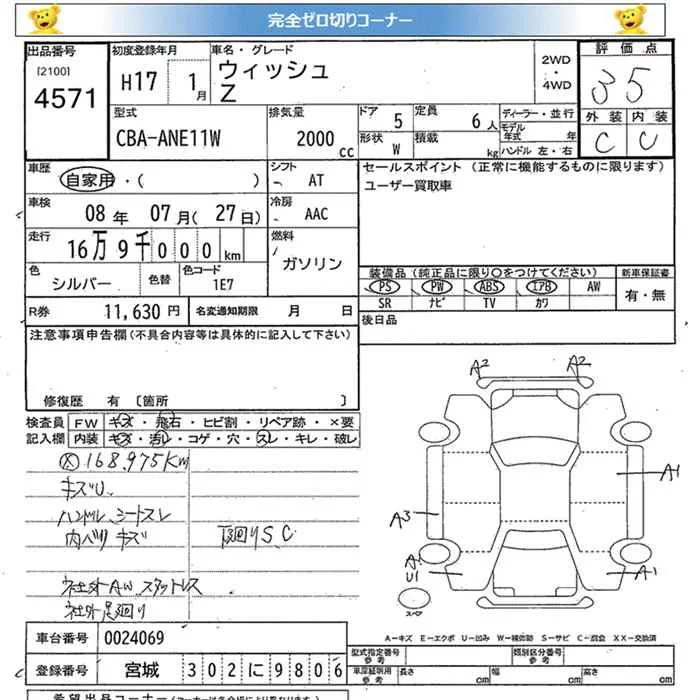 完全ゼロ切りコーナー
出品番号 初度登録年月 車名・グレード 2WD・4WD 評価点
[2100] 4571 H17 1月 ウィッシュ Z 35
型式 排気量 ドア 5 定員 6人 ディーラー・並行 外装 内装
CBA-ANE11W 2000cc 形状 W 積載 kg モデル年式 年 C C
ハンドル 左・右
車歴 自家用・( ) シフト AT セールスポイント (正常に機能するものに限ります)
ユーザー買取車
車検 08年 07月(27日) 冷房 AAC
走行 16万9千000km 燃料 ガソリン
色 シルバー 色替 色コード 1E7
装備品(純正品に限り○をつけてください) 新車保証書
PS PW ABS エアB AW 有・無
SR ナビ TV カワ
R券 11,630円 名変通知期限 月 日 後日品
注意事項申告欄(不具合内容等は具体的に記入して下さい)
修復歴 有 [箇所 ]
A2 A2
検査員 FW キズ・飛石・ヒビ割・リペア跡・×要
記入欄 内装 キズ・汚レ・コゲ・穴・スレ・キレ・破レ
168.975Km
キズU
ハンドル シートスレ
内ベリ キズ 下廻りS.C
社外AW スタットレス
社外足廻り
A1
A3
A1
U1 A1
スペア
A-キズ E-エクボ U-凹み W-補修跡 S-サビ C-腐食 XX-交換済
車台番号 0024069
型式指定番号 参考 類別区分番号 参考
登録番号 宮城 302に9806
車庫証明用 参考 長さ cm 幅 cm 高さ cm
希望出品コーナー